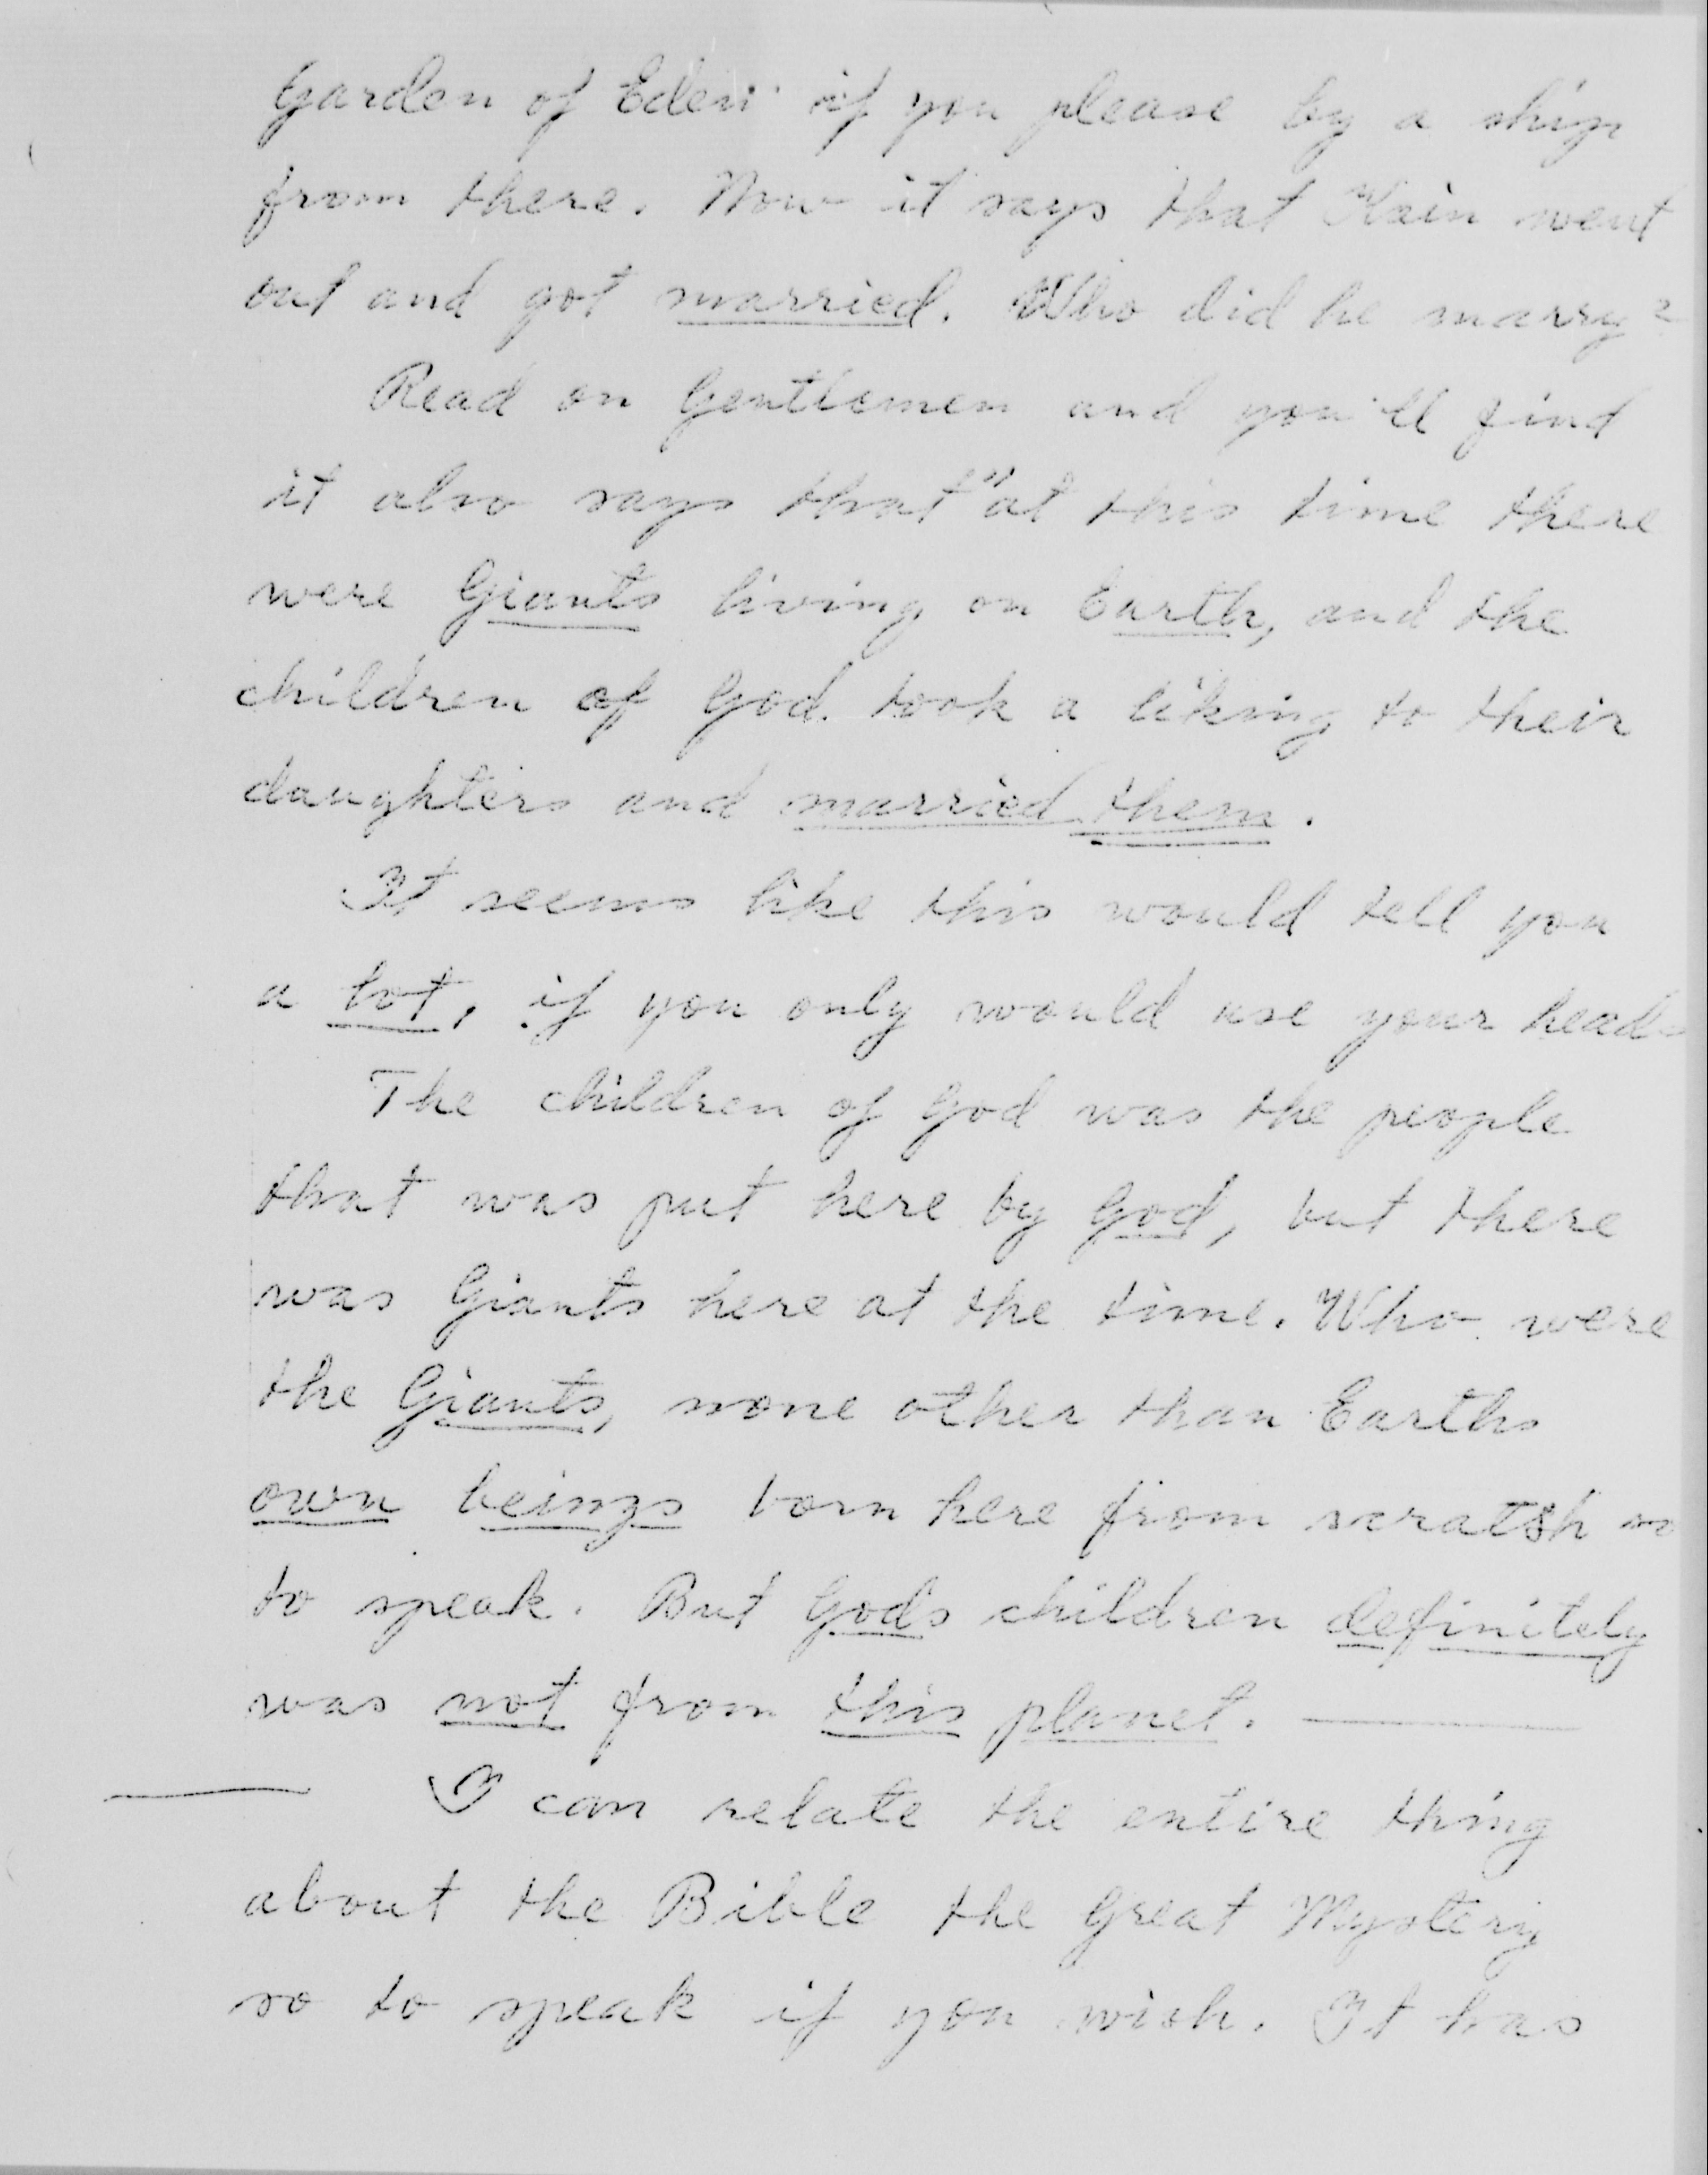 Garden of Eden" if you please by a ship
from there. Now it says that Kain went
out and got married. Who did he marry?
Read on Gentlemen and you'll find
it also says that "at this time there
were Giants living on Earth, and the
children of God took a liking to their
daughters and married them.
It seems like this would tell you
a lot, if you only would use your heads
The children of God was the people
that was put here by God, but there
was Giants here at the time. Who were
the Giants, none other than Earths
own beings born here from scratsh so
to speak. But Gods children definitely
was not from this planet. —
— I can relate the entire thing
about the Bible the Great Mystery
so to speak if you wish. It has